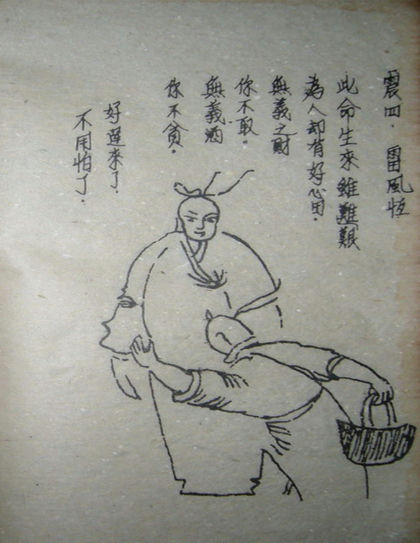 震四.雷風恆
此命生來雖難艱
為人却有好心田.
無義之財
你不取.
無義酒
你不貧.
好運來了.
不用怕了.